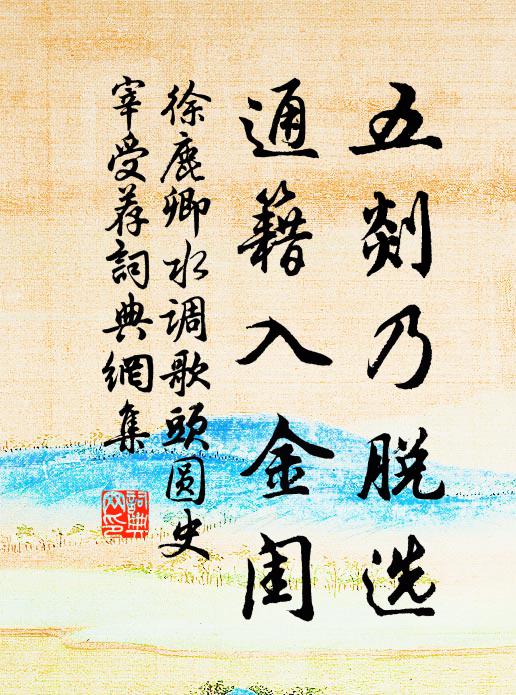 五剡乃脱选
通籍入金闺
徐鹿卿水调歌頭圆史
宰受荐詞典網集